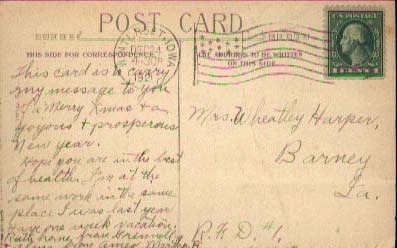 POST CARD
THIS SIDE FOR CORRESPONDENCE
ADDRESS TO BE WRITTEN
ON THIS SIDE
WINTERSET, IOWA
DEC 24
U.S. POSTAGE
1 CENT 1
This card is to carry
my message to you
"A Merry Xmas & a
joyous & prosperous
New year.
Hope you are in the best
of health. I'm at the
same work in the same
place I was last year
Have one week vacation.
Ruth home from Grinnell
from Ames
Mrs. Wheatley Harper,
Barney
Ia.
R.F.D. #1,